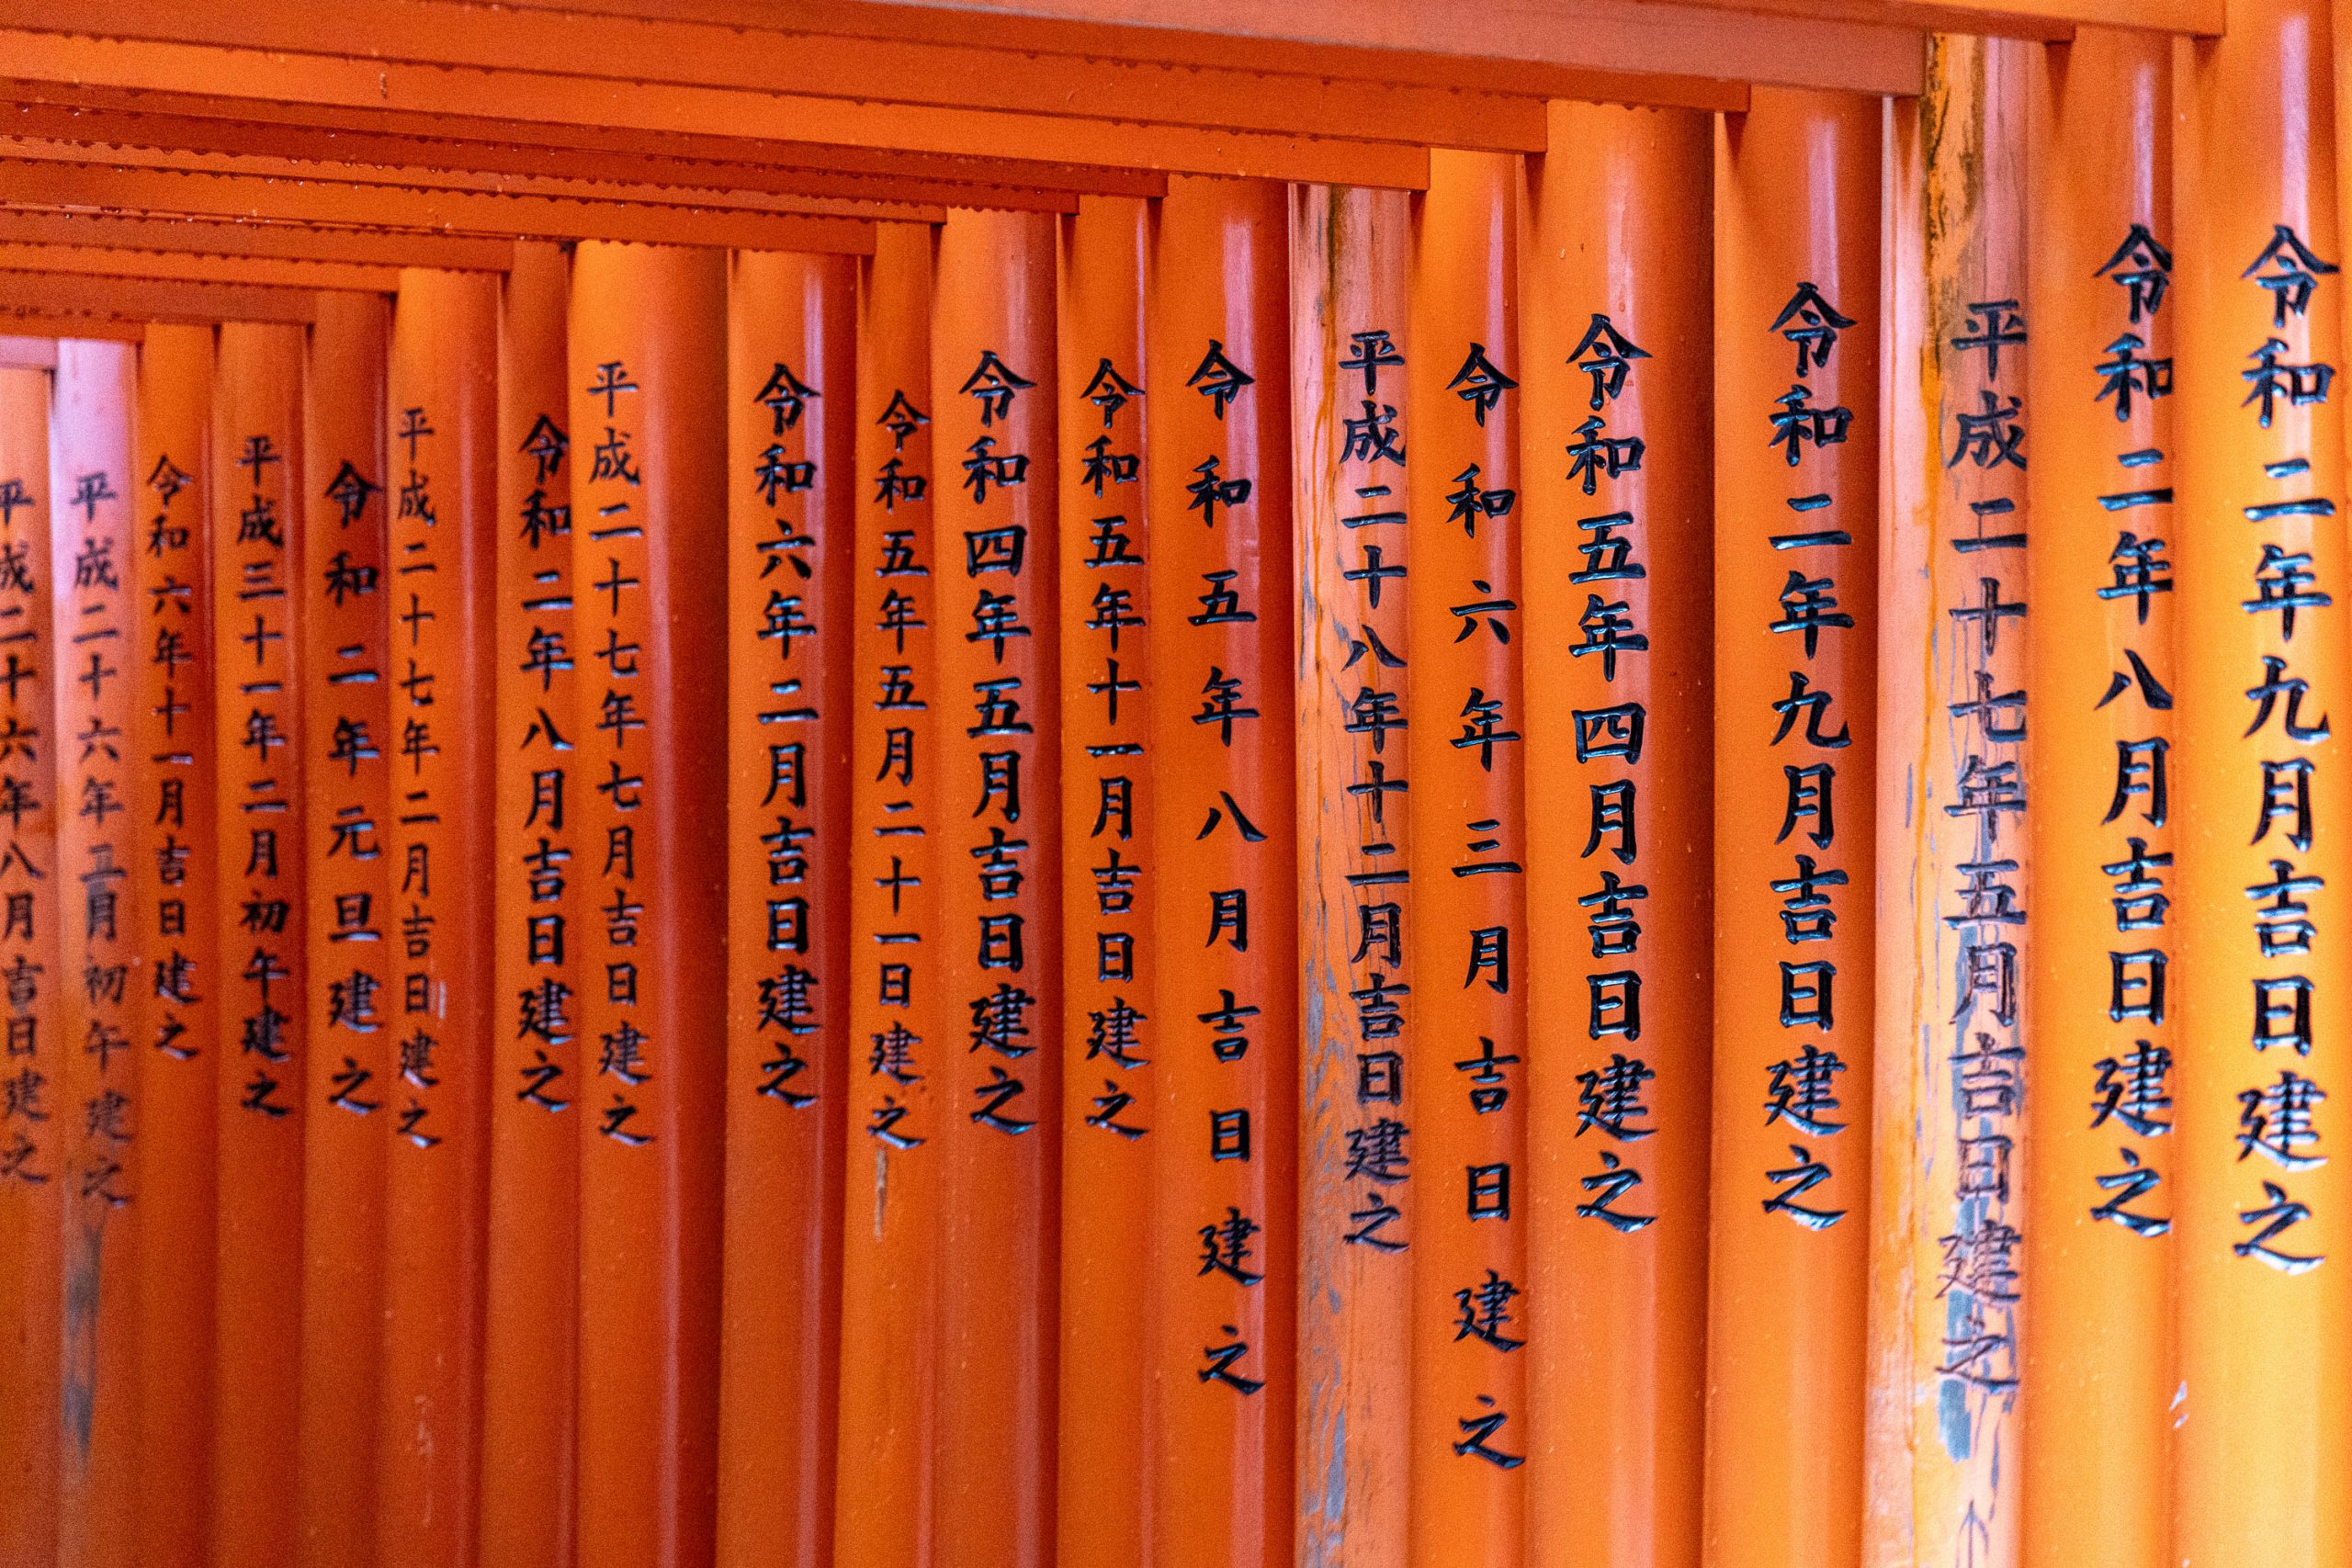 令和二年九月吉日建之
令和二年八月吉日建之
平成二十七年五月吉日建之
令和二年九月吉日建之
令和五年四月吉日建之
令和六年三月吉日建之
平成二十八年十二月吉日建之
令和五年八月吉日建之
令和五年十一月吉日建之
令和四年五月吉日建之
令和五年五月二十一日建之
令和六年二月吉日建之
平成二十七年七月吉日建之
令和二年八月吉日建之
平成二十七年二月吉日建之
令和二年元旦建之
平成三十一年二月初午建之
令和六年十一月吉日建之
平成二十六年月初午建之
平成二十六年八月吉日建之